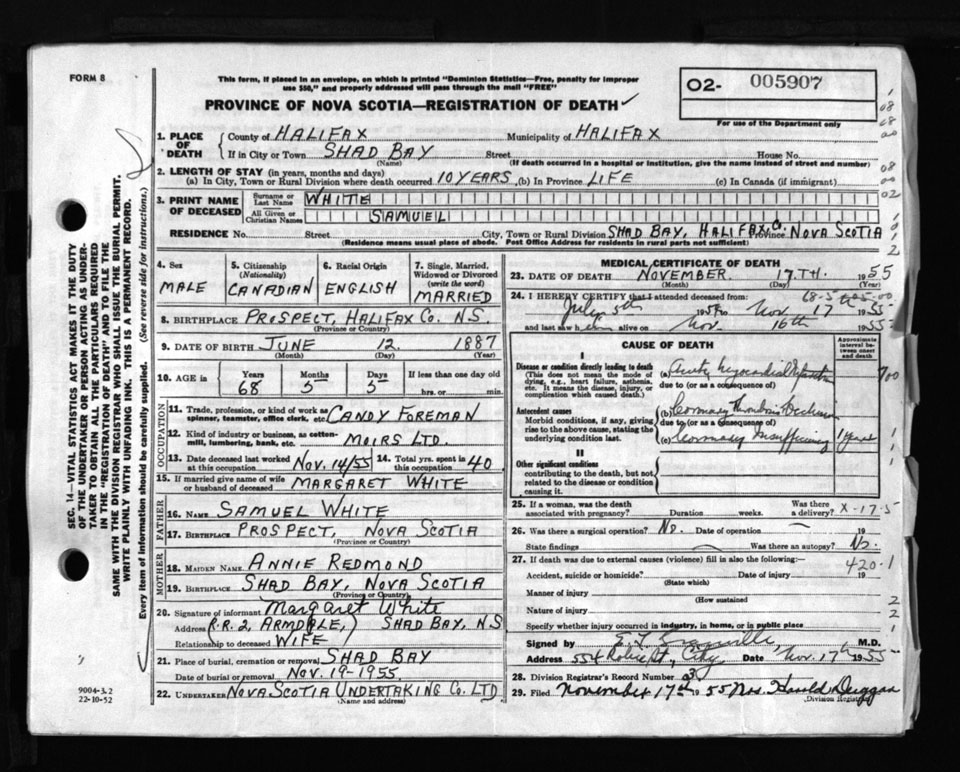 FORM 8
This form, if placed in an envelope, on which is printed "Dominion Statistics—Free, penalty for improper
use $50," and properly addressed will pass through the mail "FREE"
PROVINCE OF NOVA SCOTIA—REGISTRATION OF DEATH ✓
02- 005907
For use of the Department only
1. PLACE OF DEATH
County of HALIFAX Municipality of HALIFAX
If in City or Town SHAD BAY Street House No.
(Name) (If death occurred in a hospital or institution, give the name instead of street and number)
2. LENGTH OF STAY (in years, months and days)
(a) In City, Town or Rural Division where death occurred 10 YEARS (b) In Province LIFE (c) In Canada (if immigrant)
3. PRINT NAME OF DECEASED
Surname or Last Name WHITE
All Given or Christian Names SAMUEL
RESIDENCE No. Street City, Town or Rural Division SHAD BAY, HALIFAX Co. Province NOVA SCOTIA
(Residence means usual place of abode. Post Office Address for residents in rural parts not sufficient)
4. Sex MALE
5. Citizenship (Nationality) CANADIAN
6. Racial Origin ENGLISH
7. Single, Married, Widowed or Divorced (write the word) MARRIED
8. BIRTHPLACE PROSPECT, HALIFAX Co. N.S.
(Province or Country)
9. DATE OF BIRTH JUNE 12. 1887
(Month) (Day) (Year)
10. AGE in Years 68 Months 5 Days 5 If less than one day old hrs. or min.
OCCUPATION
11. Trade, profession, or kind of work as spinner, teamster, office clerk, etc. CANDY FOREMAN
12. Kind of industry or business, as cotton-mill, lumbering, bank, etc. MOIRS LTD.
13. Date deceased last worked at this occupation NOV. 14/55 14. Total yrs. spent in this occupation 40
15. If married give name of wife or husband of deceased MARGARET WHITE
FATHER
16. NAME SAMUEL WHITE
17. BIRTHPLACE PROSPECT, NOVA SCOTIA
(Province or Country)
MOTHER
18. MAIDEN NAME ANNIE REDMOND
19. BIRTHPLACE SHAD BAY, NOVA SCOTIA
(Province or Country)
20. Signature of informant Margaret White
Address R.R. 2, ARMDALE, SHAD BAY, N.S
Relationship to deceased WIFE
21. Place of burial, cremation or removal SHAD BAY
Date of burial or removal NOV. 19-1955.
22. UNDERTAKER NOVA SCOTIA UNDERTAKING Co. LTD.
(Name and address)
MEDICAL CERTIFICATE OF DEATH
23. DATE OF DEATH NOVEMBER 17.TH. 1955
(Month) (Day) (Year)
24. I HEREBY CERTIFY that I attended deceased from:
July 5th to Nov 17 1955
and last saw him alive on Nov. 16th 1955
CAUSE OF DEATH
Approximate interval between onset and death
I
Disease or condition directly leading to death
(This does not mean the mode of dying, e.g., heart failure, asthenia, etc. It means the disease, injury, or complication which caused death.)
(a) Acute Myocardial Infarction
due to (or as a consequence of)
Antecedent causes
Morbid conditions, if any, giving rise to the above cause, stating the underlying condition last.
(b) Coronary Thrombosis Occlusion
due to (or as a consequence of)
(c) Coronary Insufficiency 1 year
II
Other significant conditions
contributing to the death, but not related to the disease or condition causing it.
25. If a woman, was the death associated with pregnancy? Duration weeks. Was there a delivery? X-17-5
26. Was there a surgical operation? No. Date of operation 19
State findings Was there an autopsy? No.
27. If death was due to external causes (violence) fill in also the following: 420.1
Accident, suicide or homicide? Date of injury 19
(State which)
Manner of injury
(How sustained)
Nature of injury
Specify whether injury occurred in industry, in home, or in public place
Signed by M.D.
Address 554 Robie St., City Date Nov. 17th 1955
28. Division Registrar's Record Number
29. Filed November 17th 1955 Mrs. Harold Duggan
(Division Registrar)
SEC. 14—VITAL STATISTICS ACT MAKES IT THE DUTY
OF THE UNDERTAKER OR PERSON ACTING AS UNDER-
TAKER TO OBTAIN ALL THE PARTICULARS REQUIRED
IN THE "REGISTRATION OF DEATH" AND TO FILE THE
SAME WITH THE DIVISION REGISTRAR WHO SHALL ISSUE THE BURIAL PERMIT.
WRITE PLAINLY WITH UNFADING INK. THIS IS A PERMANENT RECORD.
Every item of information should be carefully supplied. (See reverse side for instructions.)
9004-3.2
22-10-52